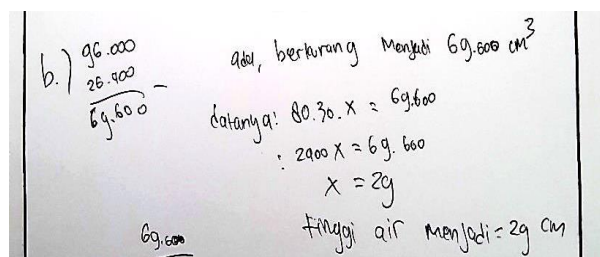 b.) 96.000
26.400 -
69.600
ada, berkurang Menjadi 69.600 cm³
datanya: 80.30.x = 69.600
: 2400 x = 69.600
x = 29
tinggi air menjadi = 29 cm
69.600